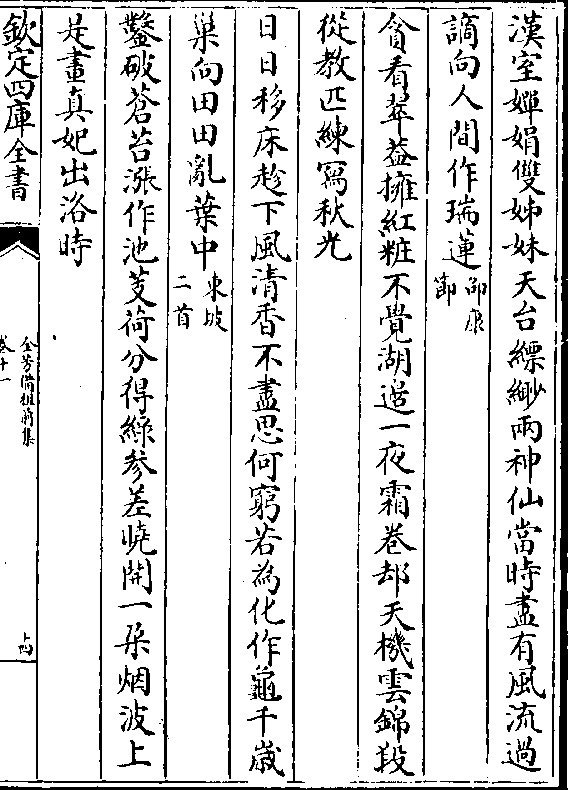 漢室嬋娟雙姊妹天台縹緲兩神仙當時盡有風流過
謫向人間作瑞蓮邵康節
貪看翠葢擁紅粧不覺湖邉一夜霜卷却天機雲錦段
從教匹練寫秋光
日日移床趁下風清香不盡思何窮若為化作龜千歳
巢向田田亂葉中東坡二首
鑿破蒼苔漲作池芰荷分得綠參差曉開一朶烟波上
是畫真妃出洛時
欽定四庫全書
全芳備祖前集
卷十一
十四